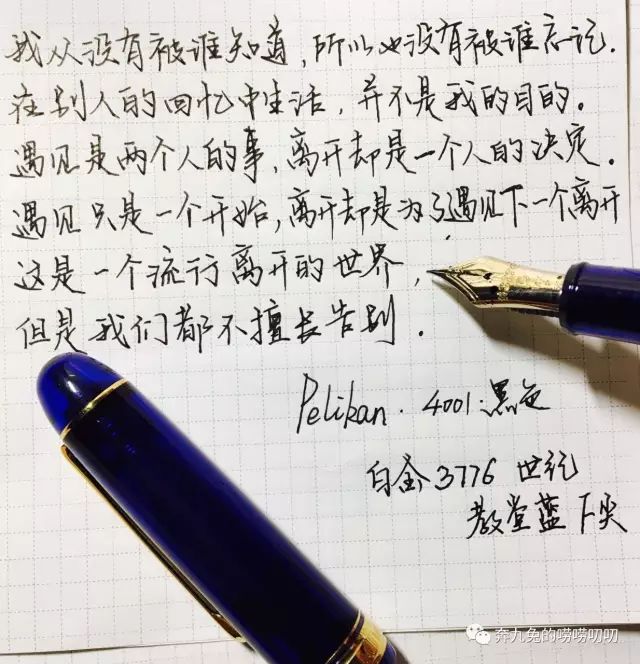 我从没有被谁知道,所以也没有被谁忘记.
在别人的回忆中生活,并不是我的目的。
遇见是两个人的事,离开却是一个人的决定.
遇见只是一个开始,离开却是为了遇见下一个离开
这是一个流行离开的世界,
但是我们都不擅长告别.
Pelikan. 4001:黑色
白金3776 世纪
教堂蓝 F尖
奔九兔的唠唠叨叨